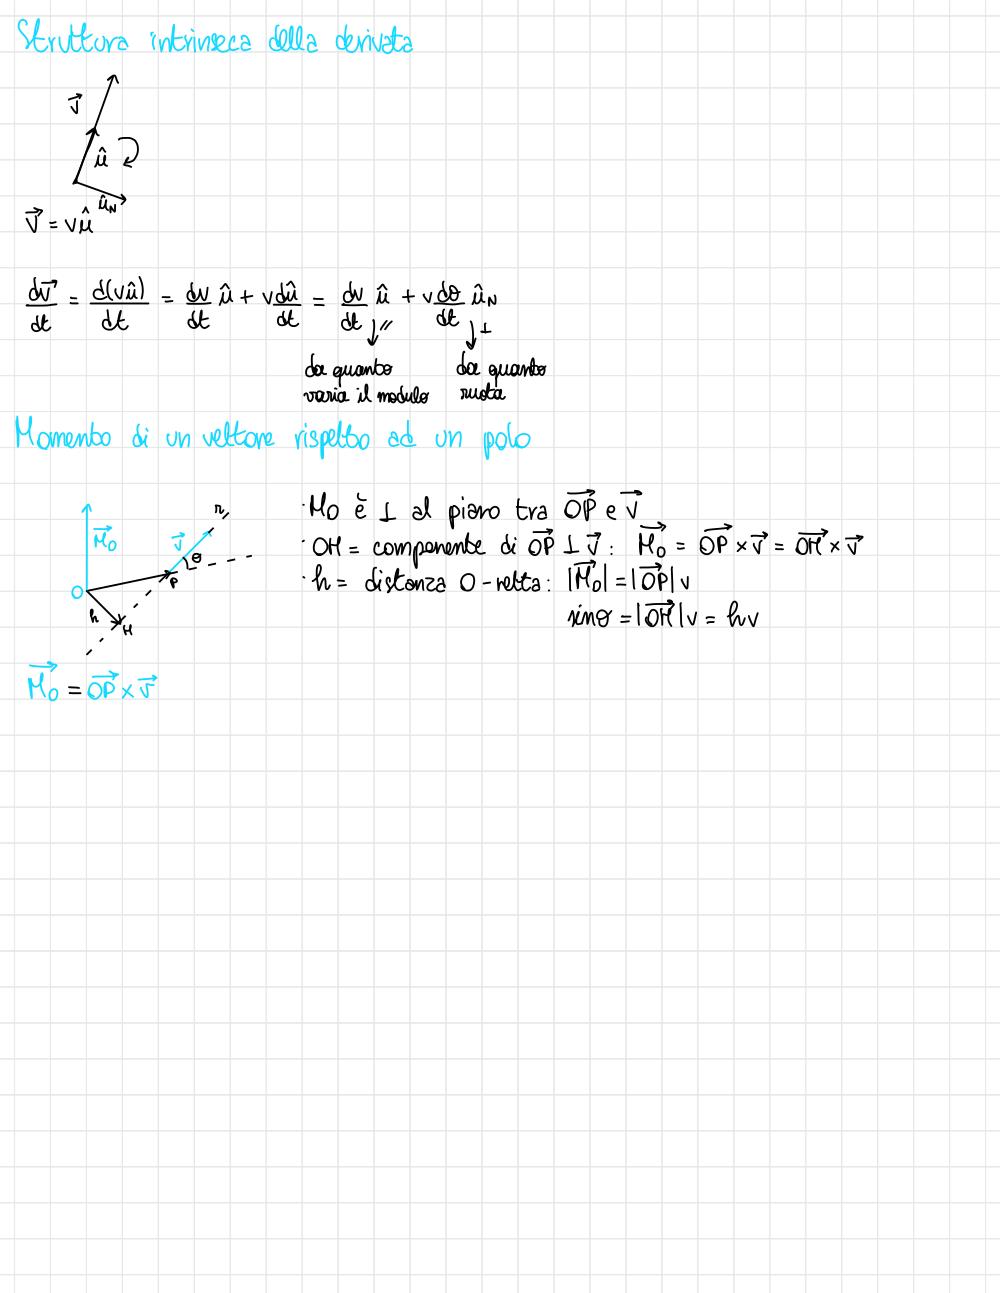 Struttura intrinseca della derivata
v⃗
û
û_N
v⃗ = vû
dv⃗/dt = d(vû)/dt = dv/dt û + v dû/dt = dv/dt û + v dθ/dt û_N
// ⊥
da quanto varia il modulo
da quanto ruota
Momento di un vettore rispetto ad un polo
M⃗_O
v⃗
r
θ
O
P
h
H
M⃗_O = OP⃗ × v⃗
· M_O è ⊥ al piano tra OP⃗ e v⃗
· OH = componente di OP⃗ ⊥ v⃗ : M⃗_O = OP⃗ × v⃗ = OH⃗ × v⃗
· h = distanza O-retta: |M⃗_O| = |OP⃗| v
sinθ = |OH⃗| v = hv